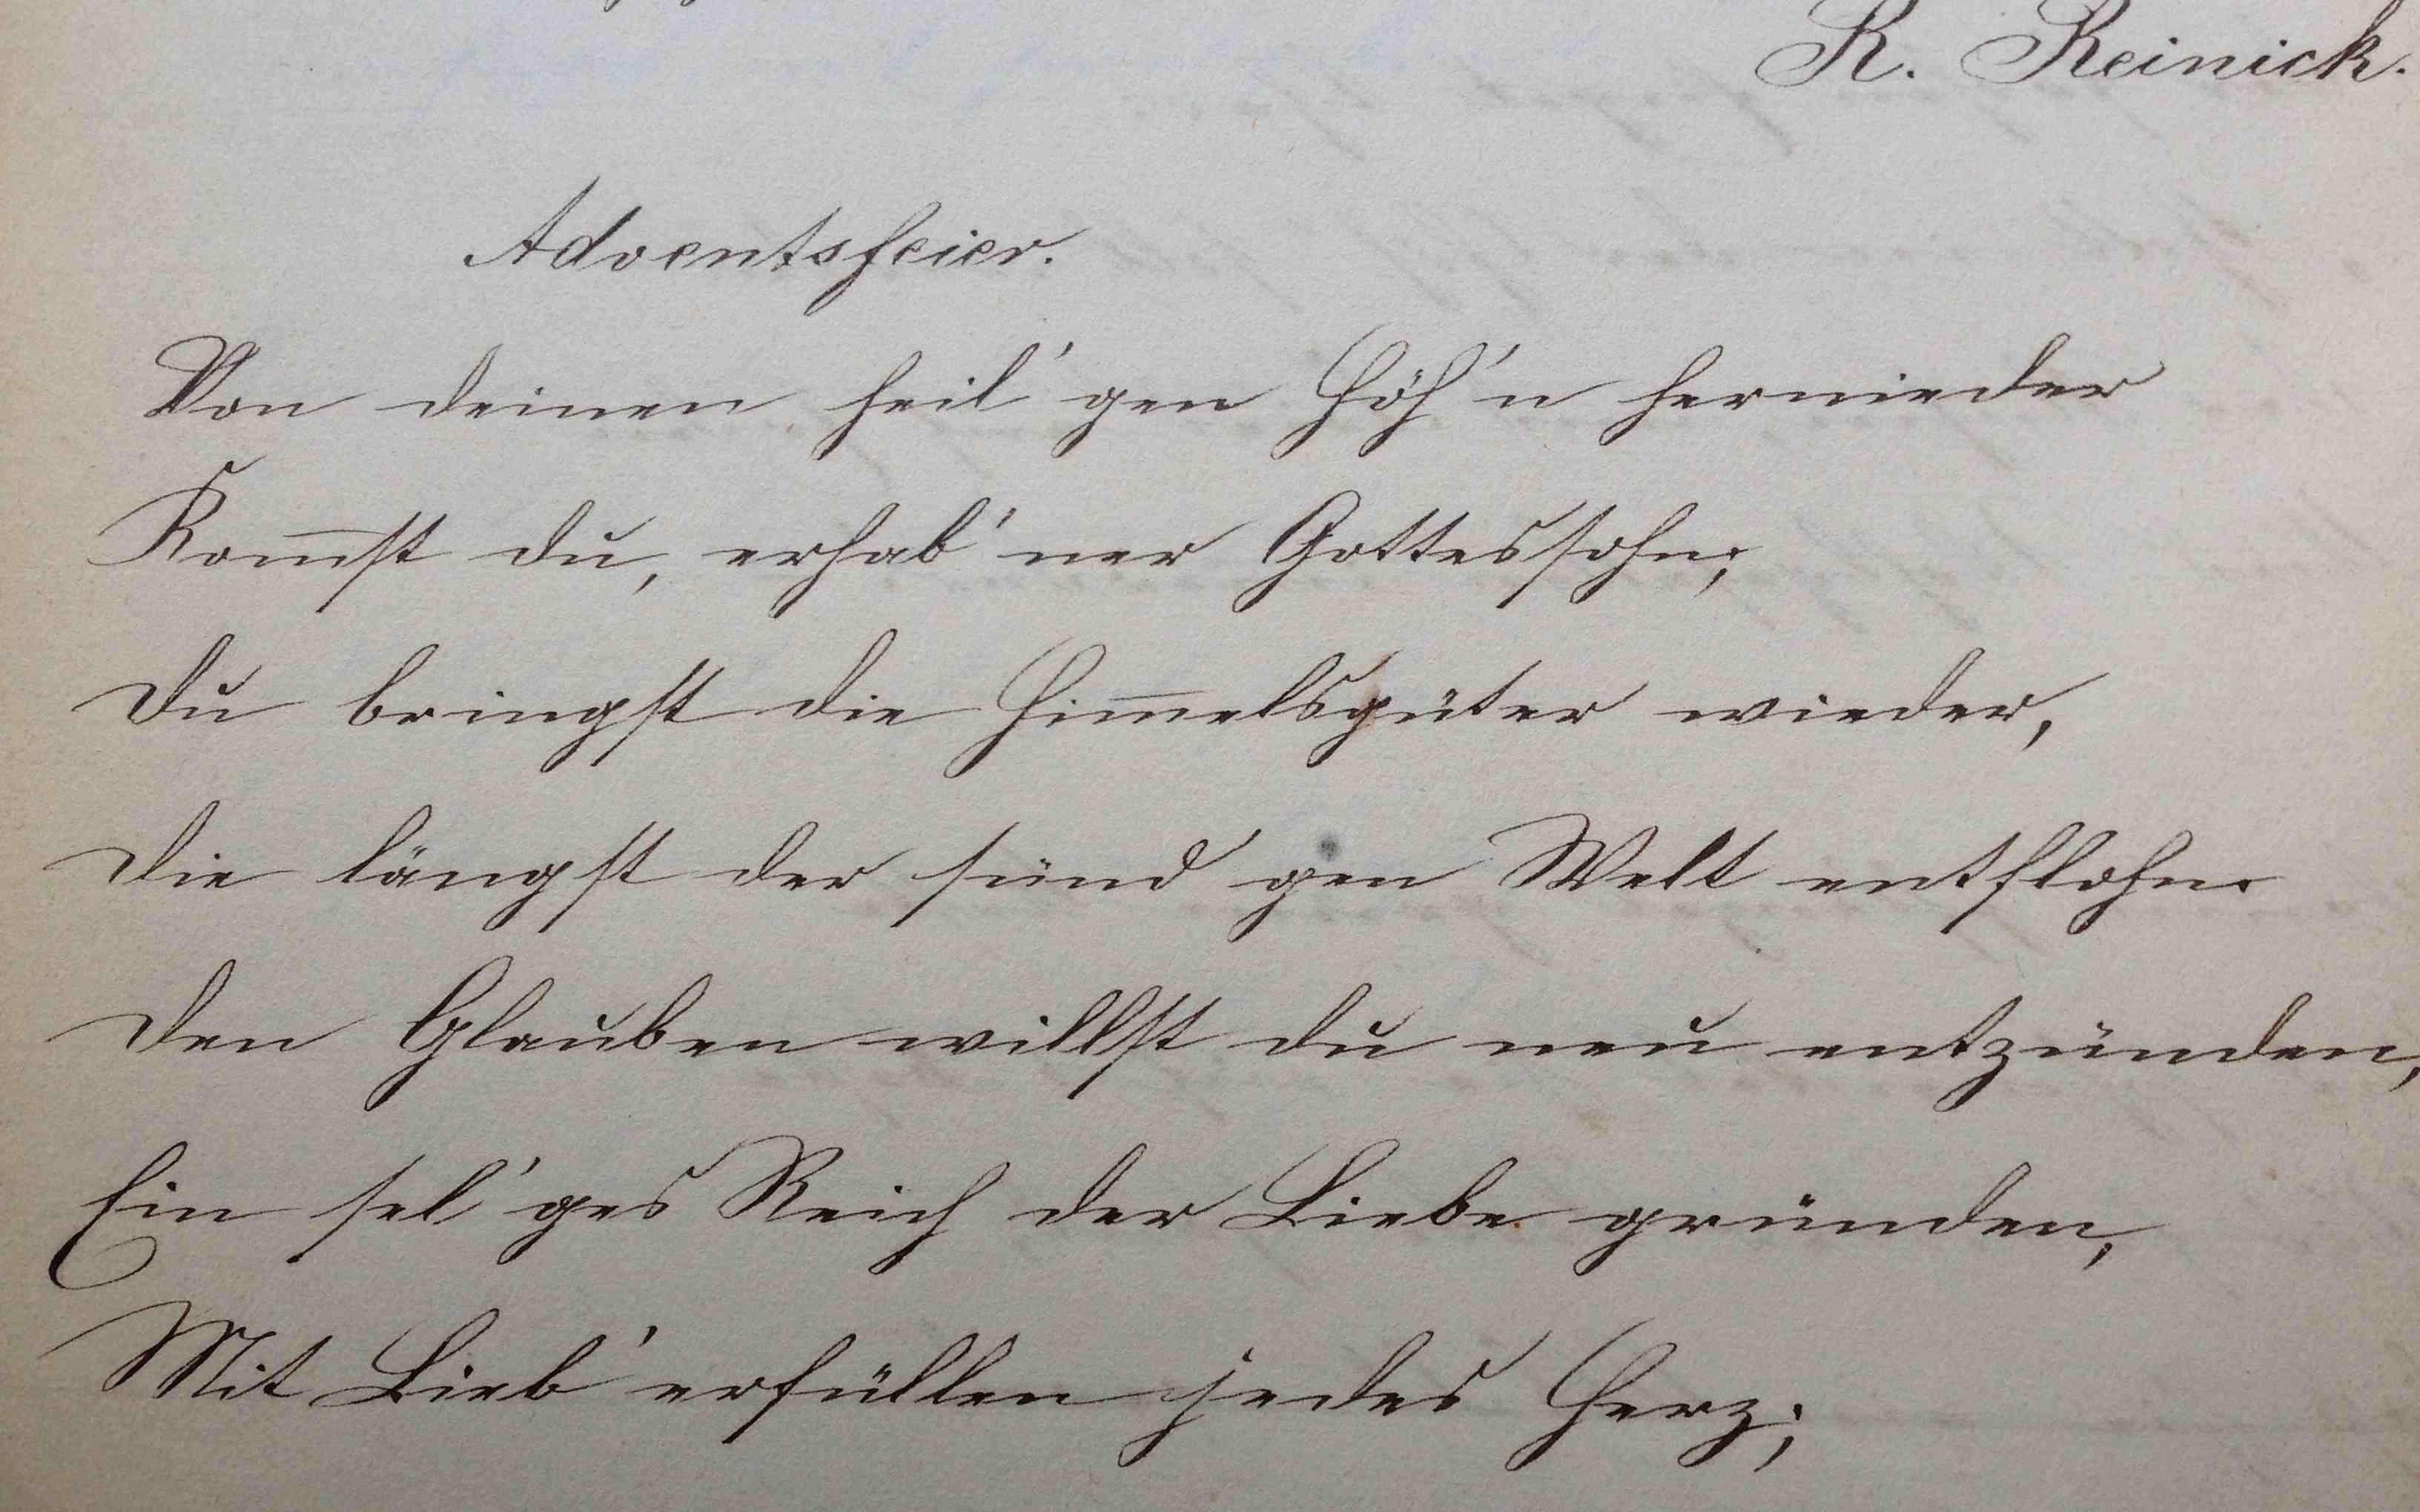 R. Reinick.
Adventsfeier.
Von deinen heil'gen Höh'n hernieder
Kom̅st du, erhab'ner Gottessohn;
Du bringst die Him̅elsgüter wieder,
Die längst der sünd'gen Welt entflohn.
Den Glauben willst du neu entzünden,
Ein sel'ges Reich der Liebe gründen,
Mit Lieb' erfüllen jedes Herz;